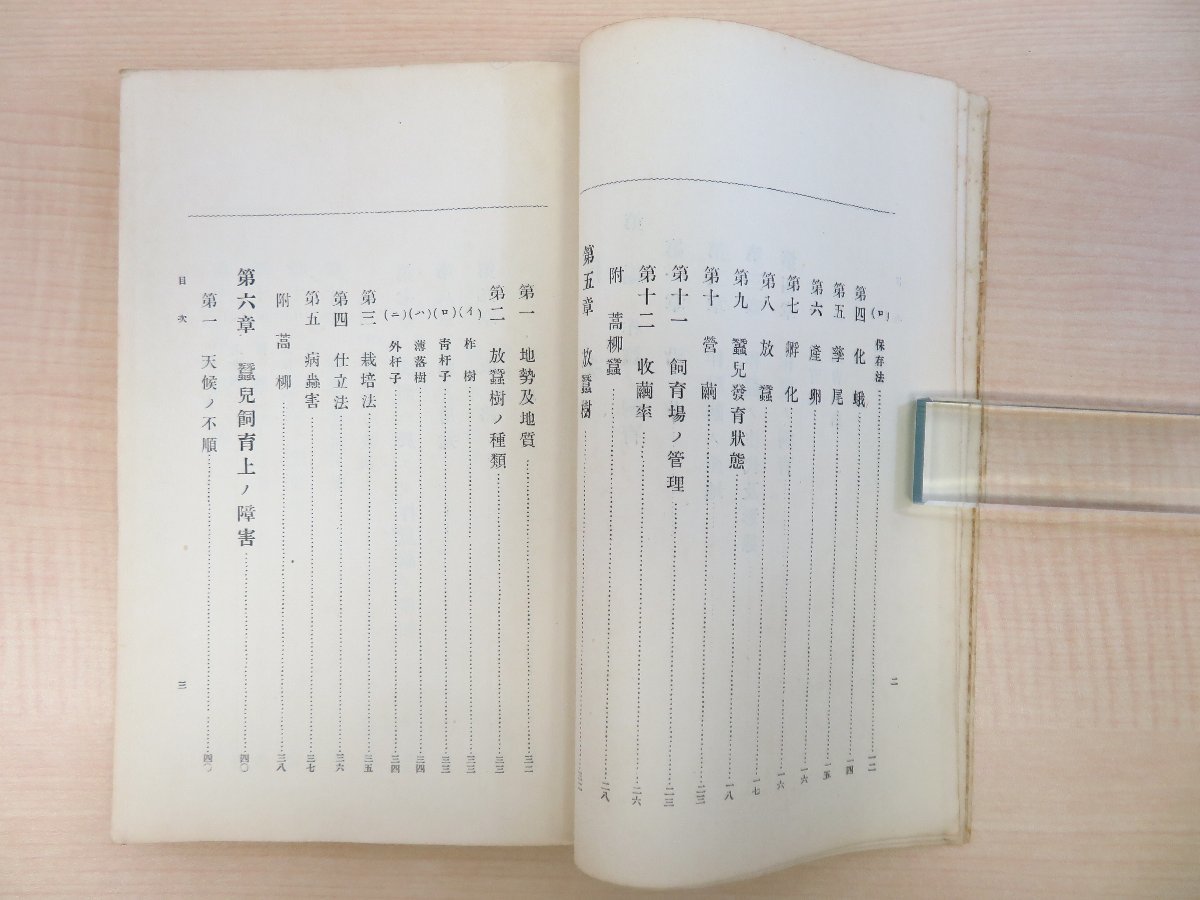 (ロ) 保存法…………一二
第四 化蛾…………一四
第五 孳尾…………一五
第六 產卵…………一六
第七 孵化…………一六
第八 放蠶…………一七
第九 蠶兒發育狀態…………一八
第十 營繭…………二三
第十一 飼育場ノ管理…………二三
第十二 收繭率…………二六
附 蒿柳蠶…………二八
第五章 放蠶樹…………三二
二
第一 地勢及地質…………三二
第二 放蠶樹ノ種類…………三三
(イ) 柞樹…………三三
(ロ) 靑杆子…………三三
(ハ) 薄落樹…………三四
(ニ) 外杆子…………三四
第三 栽培法…………三五
第四 仕立法…………三六
第五 病蟲害…………三七
附 蒿柳…………三八
第六章 蠶兒飼育上ノ障害…………四〇
第一 天候ノ不順…………四〇
目次
三